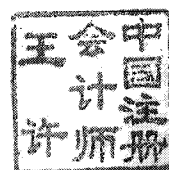 中国注册
会计师
王许